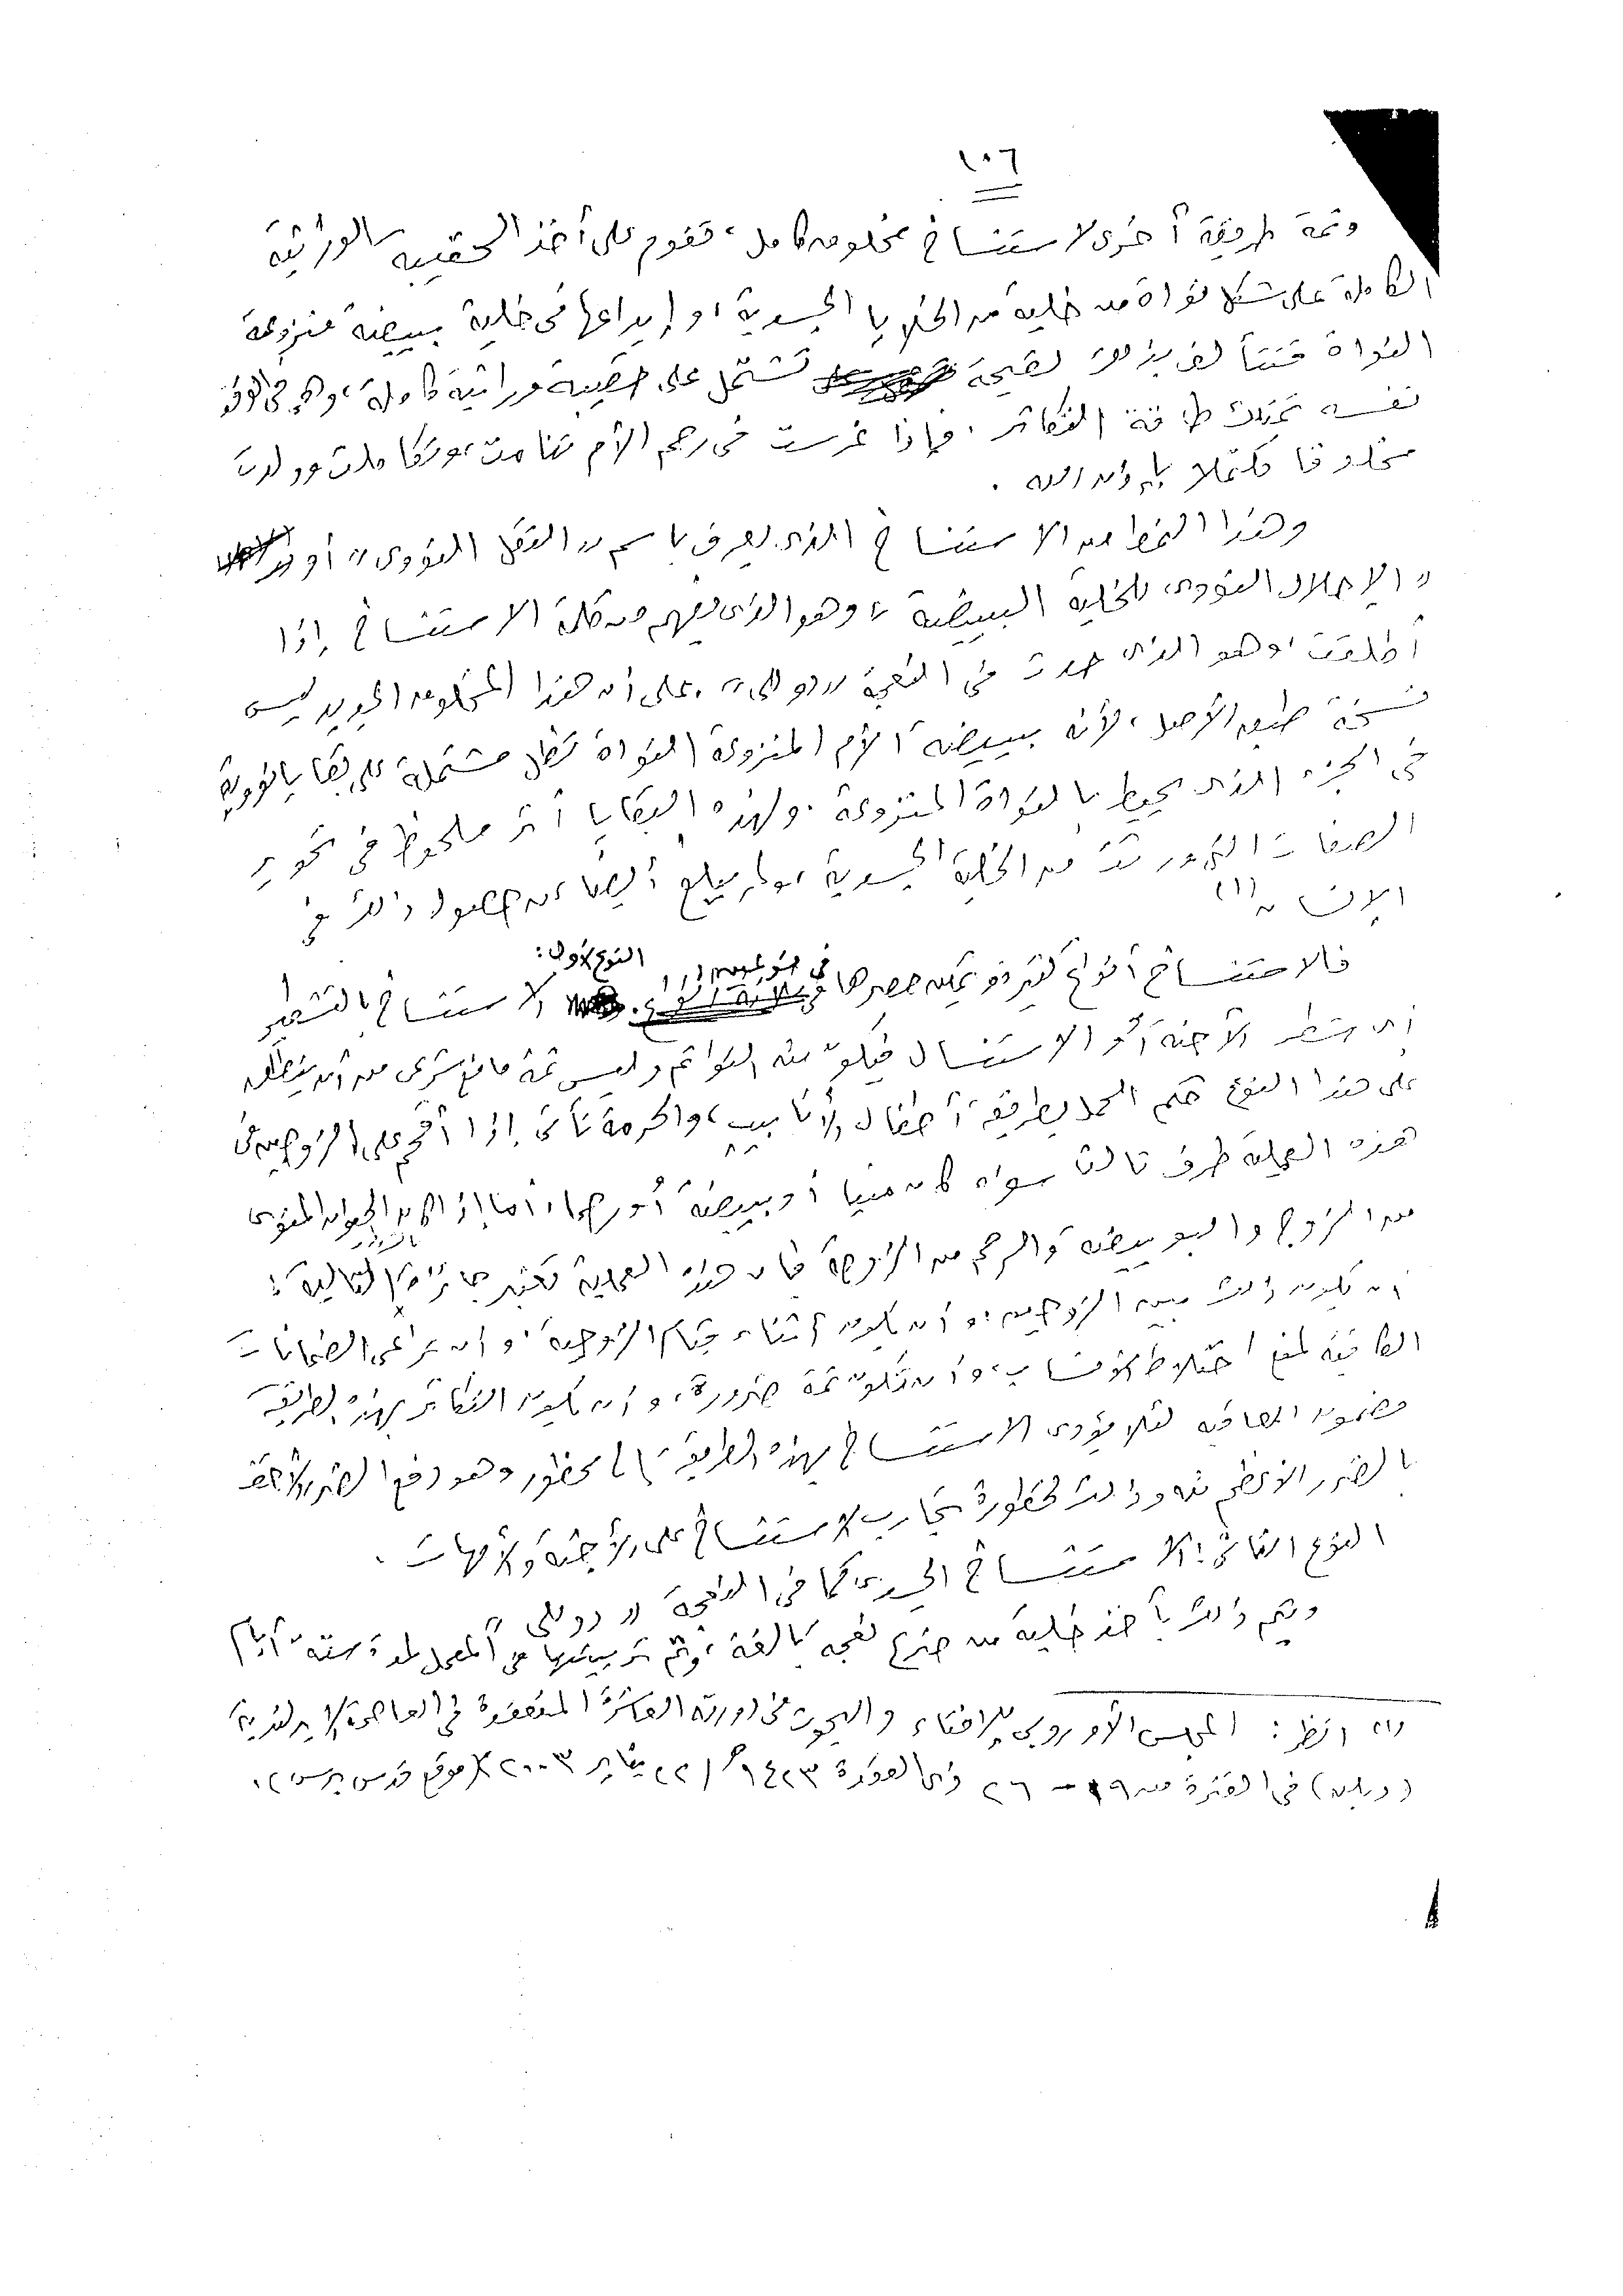 ١٠٦
وثمة طريقة أخرى لاستنساخ مخلوق كامل، تقوم على أخذ الحقيبة الوراثية
الكاملة على شكل نواة من خلية من الخلايا الجسدية، وإيداعها في خلية بييضة منزوعة
النواة فتتألف بذلك لقيحة تشتمل على حقيبة وراثية كاملة، وهي في الوقت
نفسه تمتلك طاقة التكاثر. فإذا غرست في رحم الأم تنامت، وتكاملت وولدت
مخلوقا مكتملا بإذن الله.
وهذا النمط من الاستنساخ الذي يعرف باسم "النقل النووي" أو
"الإحلال النووي للخلية البييضية"، وهو الذي يفهم من كلمة الاستنساخ إذا
أطلقت، وهو الذي حدث في النعجة "دوللي". على أن هذا المخلوق الجديد ليس
نسخة طبق الأصل، لأن بييضة الأم المنزوعة النواة تظل مشتملة على بقايا نووية
في الجزء الذي يحيط بالنواة المنزوعة. ولهذه البقايا أثر ملحوظ في تحوير
الصفات التي ورثت من الخلية الجسدية، ولم يبلغ أيضا عن حصول ذلك في
الإنسان (١)
فالاستنساخ أنواع كثيرة يمكن حصرها في نوعين النوع الأول: الاستنساخ بالتشطير
أي شطر الأجنة أو الاستنسال فيكون منه التوائم وليس ثمة مانع شرعي من أن ينطبق
على هذا النوع حكم الحمل بطريقة أطفال الأنابيب، والحرمة تأتي إذا أقحم على الزوجين في
هذه العملية طرف ثالث سواء كان منيا أو بييضة أو رحما، أما إذا كان الحيوان المنوي
من الزوج والبوييضة والرحم من الزوجة فإن هذه العملية تعتبر جائزة بالشروط التالية:
أن يكون ذلك بين الزوجين، وأن يكون أثناء قيام الزوجية، وأن تراعى الضمانات
الكافية لمنع اختلاط الأنساب، وأن تكون ثمة ضرورة، وأن يكون التكاثر بهذه الطريقة
مضمون العاقبة لئلا يؤدي الاستنساخ بهذه الطريقة إلى محظور وهو دفع الضرر الأخف
بالضرر الأعظم منه وذلك لخطورة تجارب الاستنساخ على الأجنة والأمهات.
النوع الثاني: الاستنساخ الجسدي كما في النعجة "دوللي"
ويتم ذلك بأخذ خلية من ضرع نعجة بالغة، وتتم تربيتها في المعمل لمدة ستة أيام
(١) انظر: المجلس الأوروبي للإفتاء والبحوث في دورته العاشرة المنعقدة في العاصمة الإيرلندية
(دبلن) في الفترة من ١٩ - ٢٦ ذي القعدة ١٤٢٣هـ / ٢٢ يناير ٢٠٠٣م (موقع قدس برس).